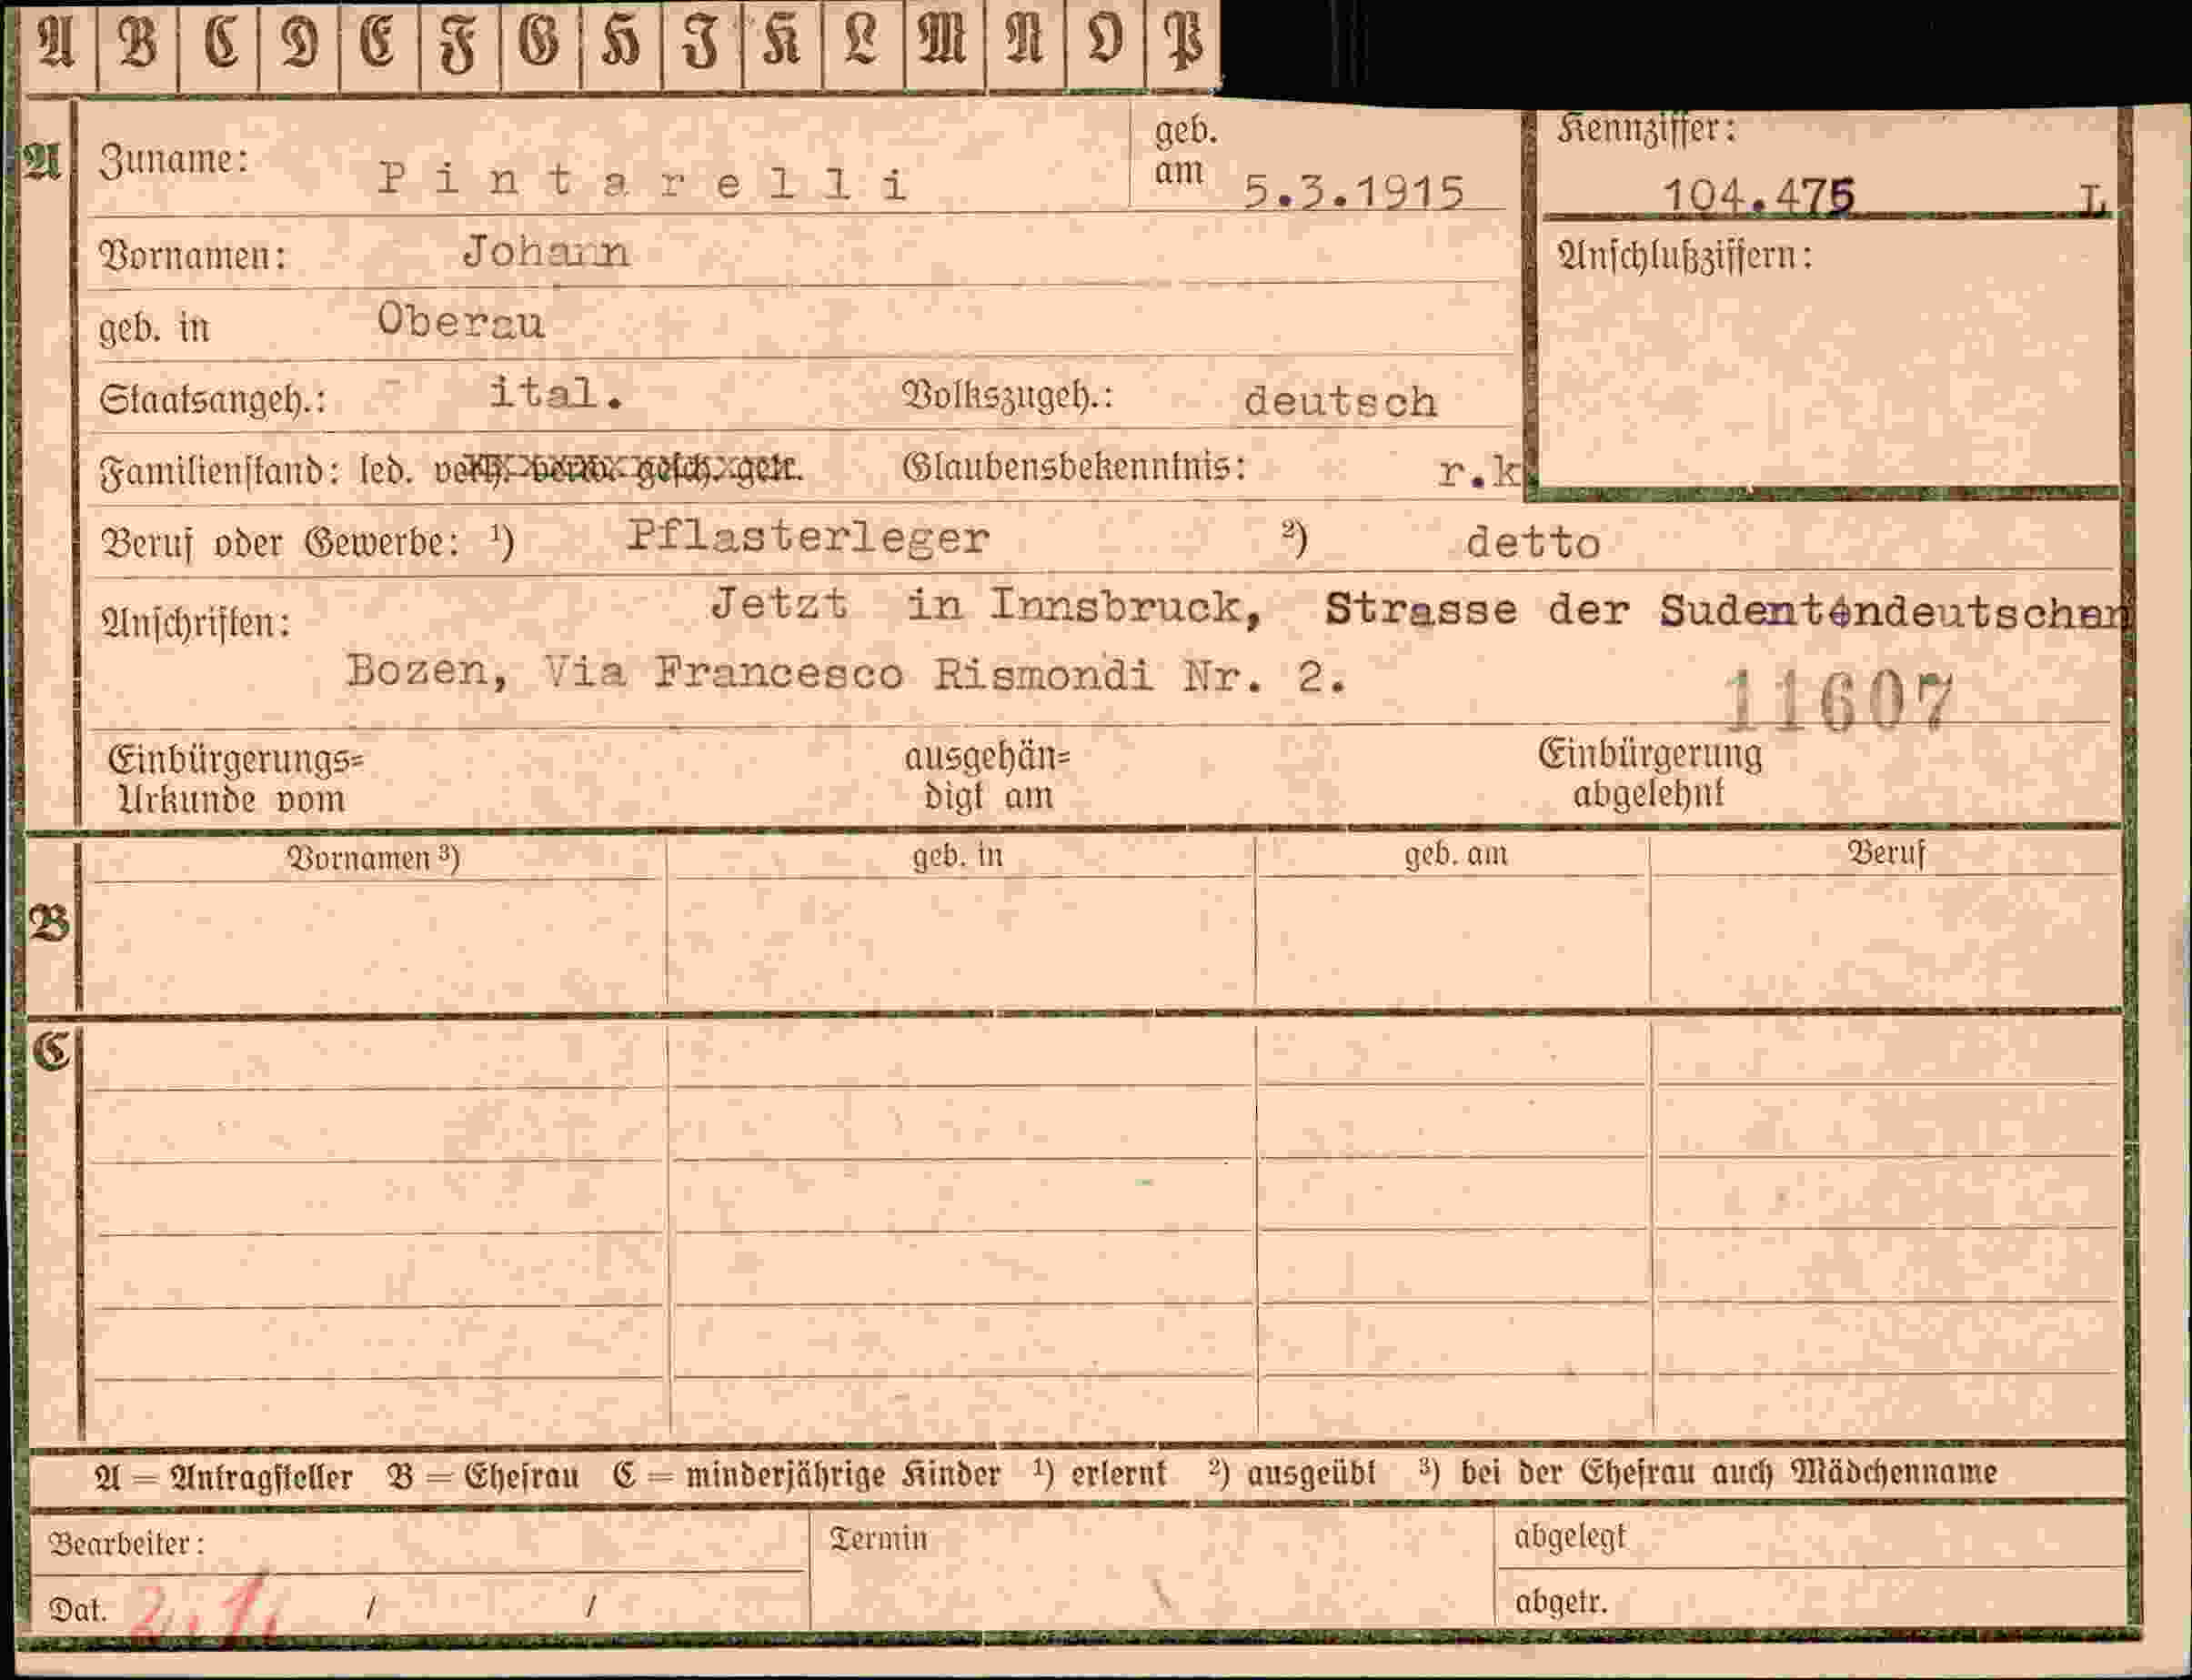 A B C D E F G H I K L M N O P
A Zuname: Pintarelli geb. am 5.3.1915 Kennziffer: 104.475 L
Vornamen: Johann Anschlußziffern:
geb. in Oberau
Staatsangeh.: ital. Volkszugeh.: deutsch
Familienstand: led. verh. verw. gesch. getr. Glaubensbekenntnis: r.k
Beruf oder Gewerbe: ¹) Pflasterleger ²) detto
Jetzt in Innsbruck, Strasse der Sudentendeutschen
Anschriften:
Bozen, Via Francesco Rismondi Nr. 2.
11607
Einbürgerungs= ausgehän= Einbürgerung
Urkunde vom digt am abgelehnt
Vornamen ³) geb. in geb. am Beruf
B
C
A = Antragsteller B = Ehefrau C = minderjährige Kinder ¹) erlernt ²) ausgeübt ³) bei der Ehefrau auch Mädchenname
Bearbeiter: Termin abgelegt
Dat. 2.1. / / abgetr.